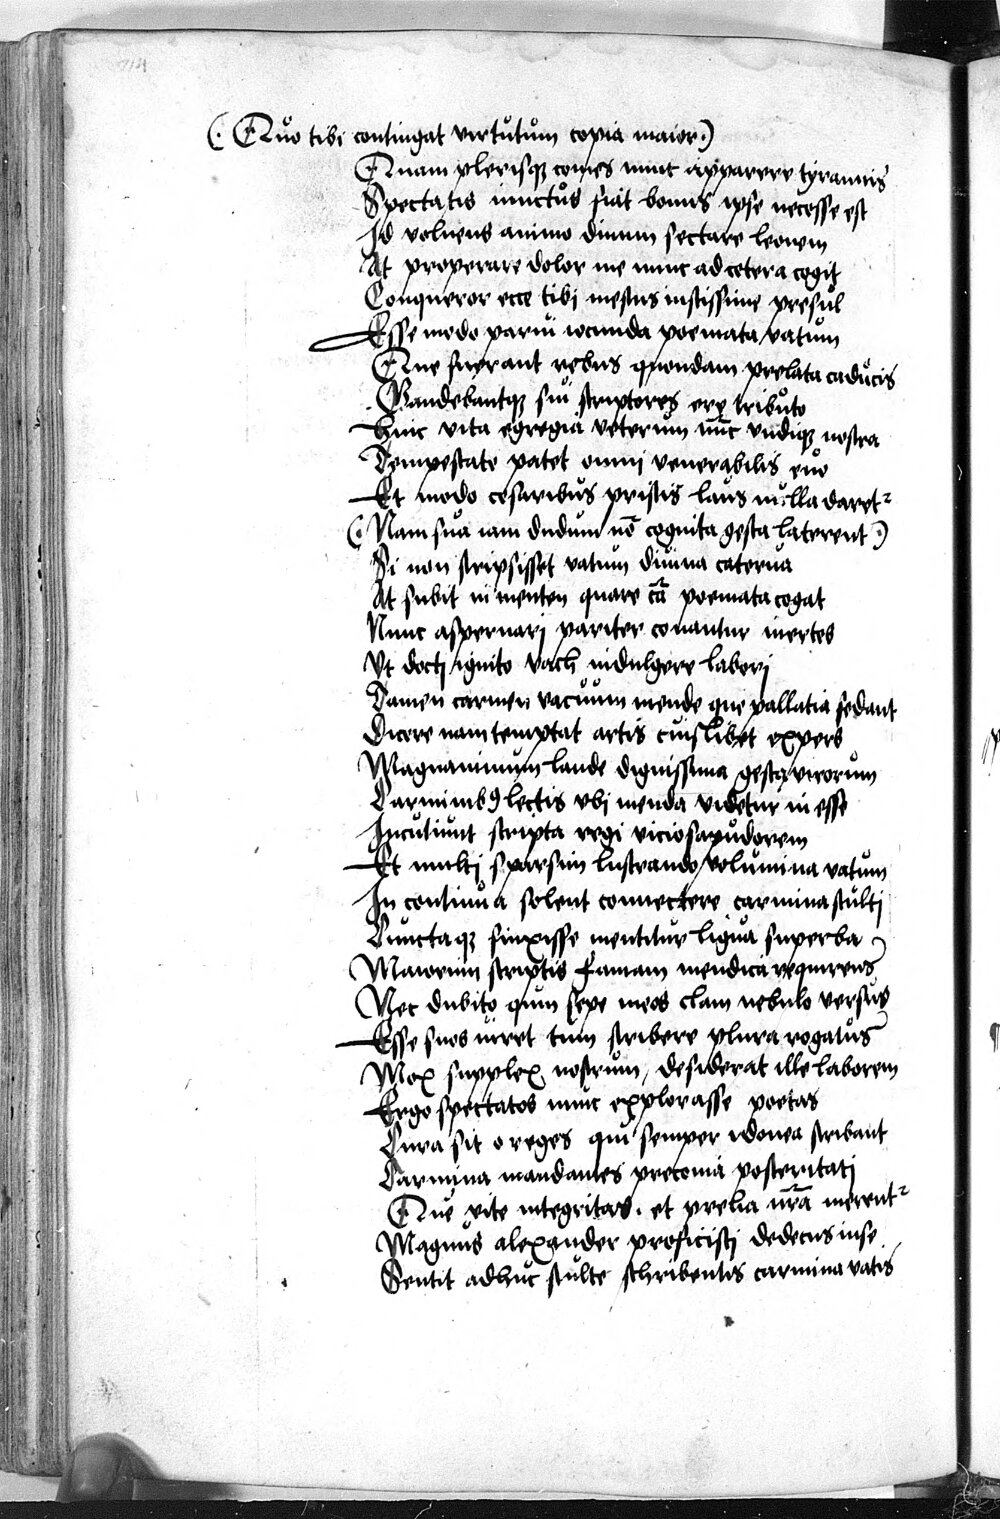 (. Quo tibi contingat virtutum copia maior .)
Quam plerisq comes nunc apparere tyrannis
Spectatis iunctus fiat bonus ipse necesse est
Id volvens animo divum sectare leonem
At properare dolor me nunc ad cetera cogit
Conqueror ecce tibi mestus iustissime presul
Esse modo parvi iocunda poemata vatum
Que fuerant rebus quondam prelata caducis
Gaudebantq sui scriptores tributo
Huic vita egregia veterum nunc undiq nostra
Tempestate patet omni venerabilis evo
Et modo cesaribus priscis laus nulla daret
(. Nam sua iam dudum nō cognita gesta laterent .)
Si non scripsisset vatum divina caterva
At subit in menten quare cā poemata cogat
Nunc aspernarj pariter conantur inertes
Vt doctj ignito vach indulgere laborj
Tamen carmen vacuum mende que pallatia sedant
Dicere nam temptat artis cuislibet expers
Magnanimum laude dignissima gesta virorum
Carminib9 lectis vbi menda videtur in esse
Incutiunt scripta regi viciosa pudorem
Et multj sparsim lustrando volumina vatum
In continua solent connectere carmina stultj
Cunctaq finxisse mentitur ligua superba
Maiorum scriptis famam mendica requirens
Nec dubito quin sepe meos clam nebulo versus
Esse suos iuret tum scribere plura rogatus
Mox supplex nostrum, desiderat ille laborem
Ergo spectatos nunc explorasse poetas
Cura sit o reges qui semper idonea scribant
Carmina mandantes preconia posteritatj
Que vite integritas. et prelia nrā merent
Magnus alexander proficiscj dedecus in se
Sentit adhuc stulte schribentis carmina vatis